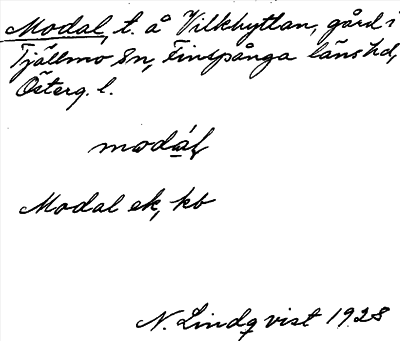 Modal, t. å Vilkhyttan, gård i
Tjällmo sn, Finspånga läns hd,
Österg. l.
modál
Modal ek, kb
N. Lindqvist 1928